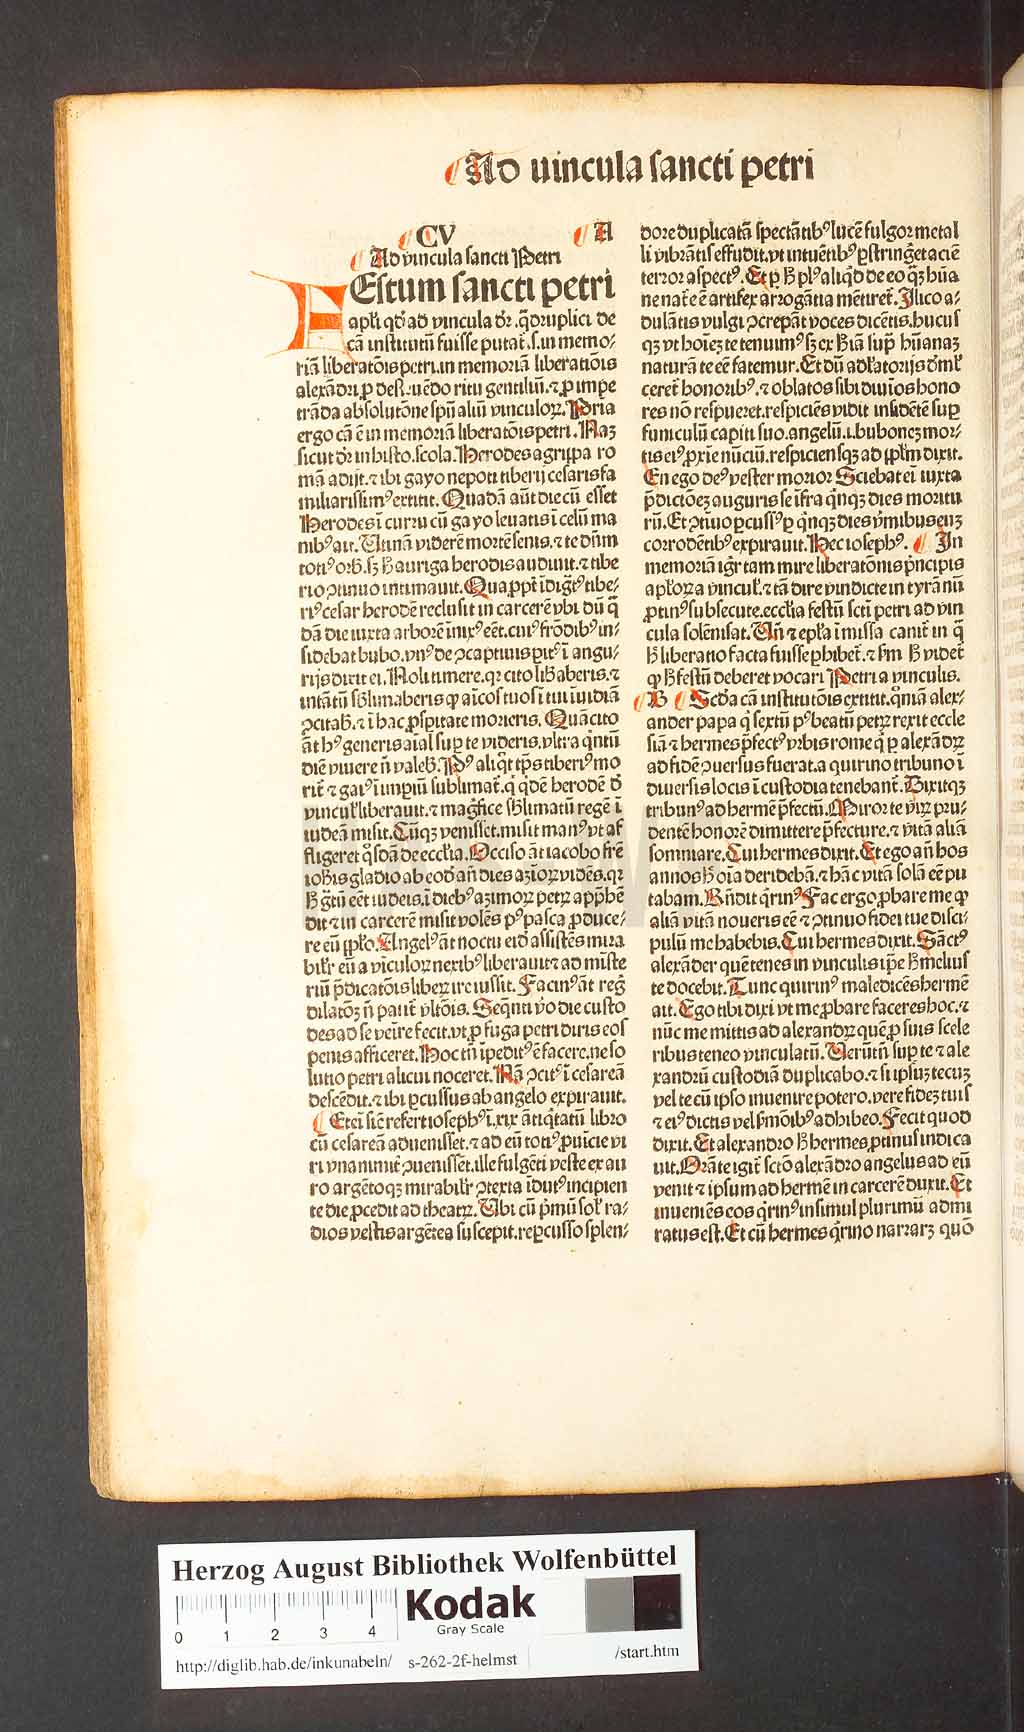 Ad uincula sancti petri
CV A
Ad vincula sancti Petri
FEstum sancti petri
apłi qd' ad vincula dr̄ .q̄druplici de
cā institutū fuisse putat̄ .s. in memo-
riā liberatōis petri. in memoriā liberatiōis
alexādri. ꝓ destruēdo ritu gentiliū. ⁊ ꝓ impe
trāda absolutōne spūaliū vinculoꝝ. Pria
ergo cā ē in memoriā liberatōis petri. Naꝫ
sicut dr̄ in histo. scola. Herodes agrippa ro
mā adijt. ⁊ ibi gayo nepoti tiberij cesaris fa
miliarissim⁹ extitit. Quadā aūt die cū esset
Herodes ī curru cū gayo leuatis ī celū ma
nib⁹ ait. Utinā viderē mortē senis. ⁊ te dn̄m
toti⁹ orb̄. sꝫ h̄ auriga herodis audiuit. ⁊ tibe
rio ꝯtinuo intimauit. Qua ꝓpt̄ īdigt̄⁹ tibe-
ri⁹ cesar herodē reclusit in carcerē vbi dū q̄
dā die iuxta arborē inix⁹ eēt. cui⁹ frōdib⁹ in-
sidebat bubo. vn⁹ de ꝯcaptiuis pit⁹ ī angu-
rijs dixit ei. Noli timere. qꝛ cito lib̄aberis. ⁊
intātū sb̄limaberis ꝙ aīcos tuos ī tui īuidiā
ꝯcitab̄. ⁊ ī hac ꝓsp̱itate morieris. Quācito
āt h⁹ generis aīal sup̱ te videris. vltra q̇ntū
diē viuere n̄ valeb̄. P⁹ aliq̇t tp̄s tiberi⁹ mo
rit̄ ⁊ gai⁹ ī imp̱iū sublimat̄. q̇ q̇dē herodē d̄
vincuł liberauit. ⁊ maḡfice sb̄limatū regē ī
iudeā misit. Cūqꝫ venisset. misit man⁹ vt af
fligeret q̇sdā de ecclīa. Occiso āt iacobo frē
ioh̄is gladio ab eod̄ an̄ dies azīoꝝ vidēs. qꝛ
h̄ gtū eēt iudeis. ī dieb⁹ azimoꝝ petꝝ app̄hē
dit ⁊ in carcerē misit volēs p⁹ pasca ꝓduce-
re eū pp̄lo. Angel⁹ āt noctu eid̄ assistēs mira
bilr̄ eū a vīculoꝝ nexib⁹ liberauit ⁊ ad mīste
riū p̄dicatōis liberꝝ ire iussit. Facin⁹ āt reḡ
dilatōꝫ n̄ patit̄ vltōis. Seq̄nti v̊o die custo
des ad se veīre fecit. vt ꝓ fuga petri duris eos
penis afficeret. Hoc tn̄ īpedit⁹ ē facere. ne so
lutio petri alicui noceret. Nā ꝯcit⁹ ī cesareā
descēdit. ⁊ ibi ꝑcussus ab angelo expirauit.
Et eī sic̄ refert ioseph⁹ ī .xix. ātiq̇tatū libro
cū cesareā aduenisset. ⁊ ad eū toti⁹ ꝓuīcie vi
ri vnanimit̄ ꝯuenissēt. ille fulgēti veste ex au
ro argētoqꝫ mirabilr̄ ꝯtexta īdut⁹ incipien
te die ꝓcedit ad theatꝝ. Ubi cū p̄mū soł ra-
dios vestis argētea suscepit. reꝑcusso splen-
dore duplicatā spectātib⁹ lucē fulgor metal
li vibrātis effudit. vt intuētib⁹ ꝑstringēt aciē
terror aspect⁹. Et ꝑ h̄ pl⁹ aliq̇d de eo qꝫ hūa
ne nat̄e ē artifex arrogātia mētiret̄. Ilico a-
dulātis vulgi ꝯcrepāt voces dicētis. hucus
qꝫ vt hoīeꝫ te tenuim⁹ sꝫ ex h̄ iā sup̄ hūanaꝫ
naturā te eē fatemur. Et dū adłatorijs d'mł
ceret̄ honorib⁹. ⁊ oblatos sibi diuīos hono
res nō respueret. respiciēs vidit insidētē sup̱
funiculū capiti suo. angelū .i. buboneꝫ mor-
tis ei⁹ ꝓxīe nūciū. respiciensqꝫ ad pp̄lm dixit.
En ego de⁹ vester morior Sciebat eī iuxta
p̄dictōeꝫ auguris se īfra q̇nqꝫ dies moritu
rū. Et ꝯtiuo ꝑcuss⁹ ꝑ q̇nqꝫ dies v̄mibus euꝫ
corrodētib⁹ expirauit. Hec ioseph⁹. In
memoriā igr̄ tam mire liberatōnis p̄ncipis
aplōꝝ a vincuł. ⁊ tā dire vindicte in tyrānū
ꝓtin⁹ subsecute. ecclīa festū scti petri ad vin
cula solēnisat. Un̄ ⁊ epła ī missa canit̄ in q̄
h̄ liberatio facta fuisse ꝑhibet̄. ⁊ s'm h̄ videt̄
ꝙ h̄ festū deberet vocari Petri a vinculis.
B Scd̄a cā institutōis extitit. qm̄ā alex-
ander papa q̇ sextū p⁹ beatū petꝝ rexit eccle
siā ⁊ hermes p̄fect⁹ vrbis rome q̇ ꝑ alexādꝝ
ad fidē ꝯuersus fuerat. a quirino tribuno ī
diuersis locis ī custodia tenebant̄. Dixitqꝫ
tribun⁹ ad hermē p̄fectū. Miror te virꝝ pru-
dentē honorē dimittere p̄fecture. ⁊ vitā aliā
somniare. Cui hermes dixit. Et ego an̄ hos
annos h̄ oīa deridebā. ⁊ hāc vitā solā eē pu
tabam. Rn̄dit q̇rin⁹ Fac ergo ꝓbare me ꝙ
aliā vitā noueris eē ⁊ ꝯtinuo fidei tue disci-
pulū me habebis. Cui hermes dixit. Sāct⁹
alexāder quē tenes in vinculis ip̄e h̄ melius
te docebit. Tunc quirin⁹ maledicēs hermē
ait. Ego tibi dixi vt me ꝓbare faceres hoc. ⁊
nūc me mittis ad alexandꝝ quē ꝓ suis scele
ribus teneo vinculatū. Verūtn̄ sup̱ te ⁊ ale
xandrū custodiā duplicabo. ⁊ si ipsūꝫ tecuꝫ
vel te cū ipso inuenire potero. vere fideꝫ tuis
⁊ ei⁹ dictis vel ẜmōib⁹ adhibeo. Fecit quod
dixit. Et alexandro h̄ hermes ꝓtinus indica
uit. Orāte igit̄ sctō alexādro angelus ad eū
venit ⁊ ipsum ad hermē in carcerē duxit. Et
inueniēs eos q̇rin⁹ insimul plurimū admi
ratus est. Et cū hermes q̇rino narrarꝫ quō
Herzog August Bibliothek Wolfenbüttel
Kodak
Gray Scale
0 1 2 3 4
http://diglib.hab.de/inkunabeln/ s-262-2f-helmst /start.htm